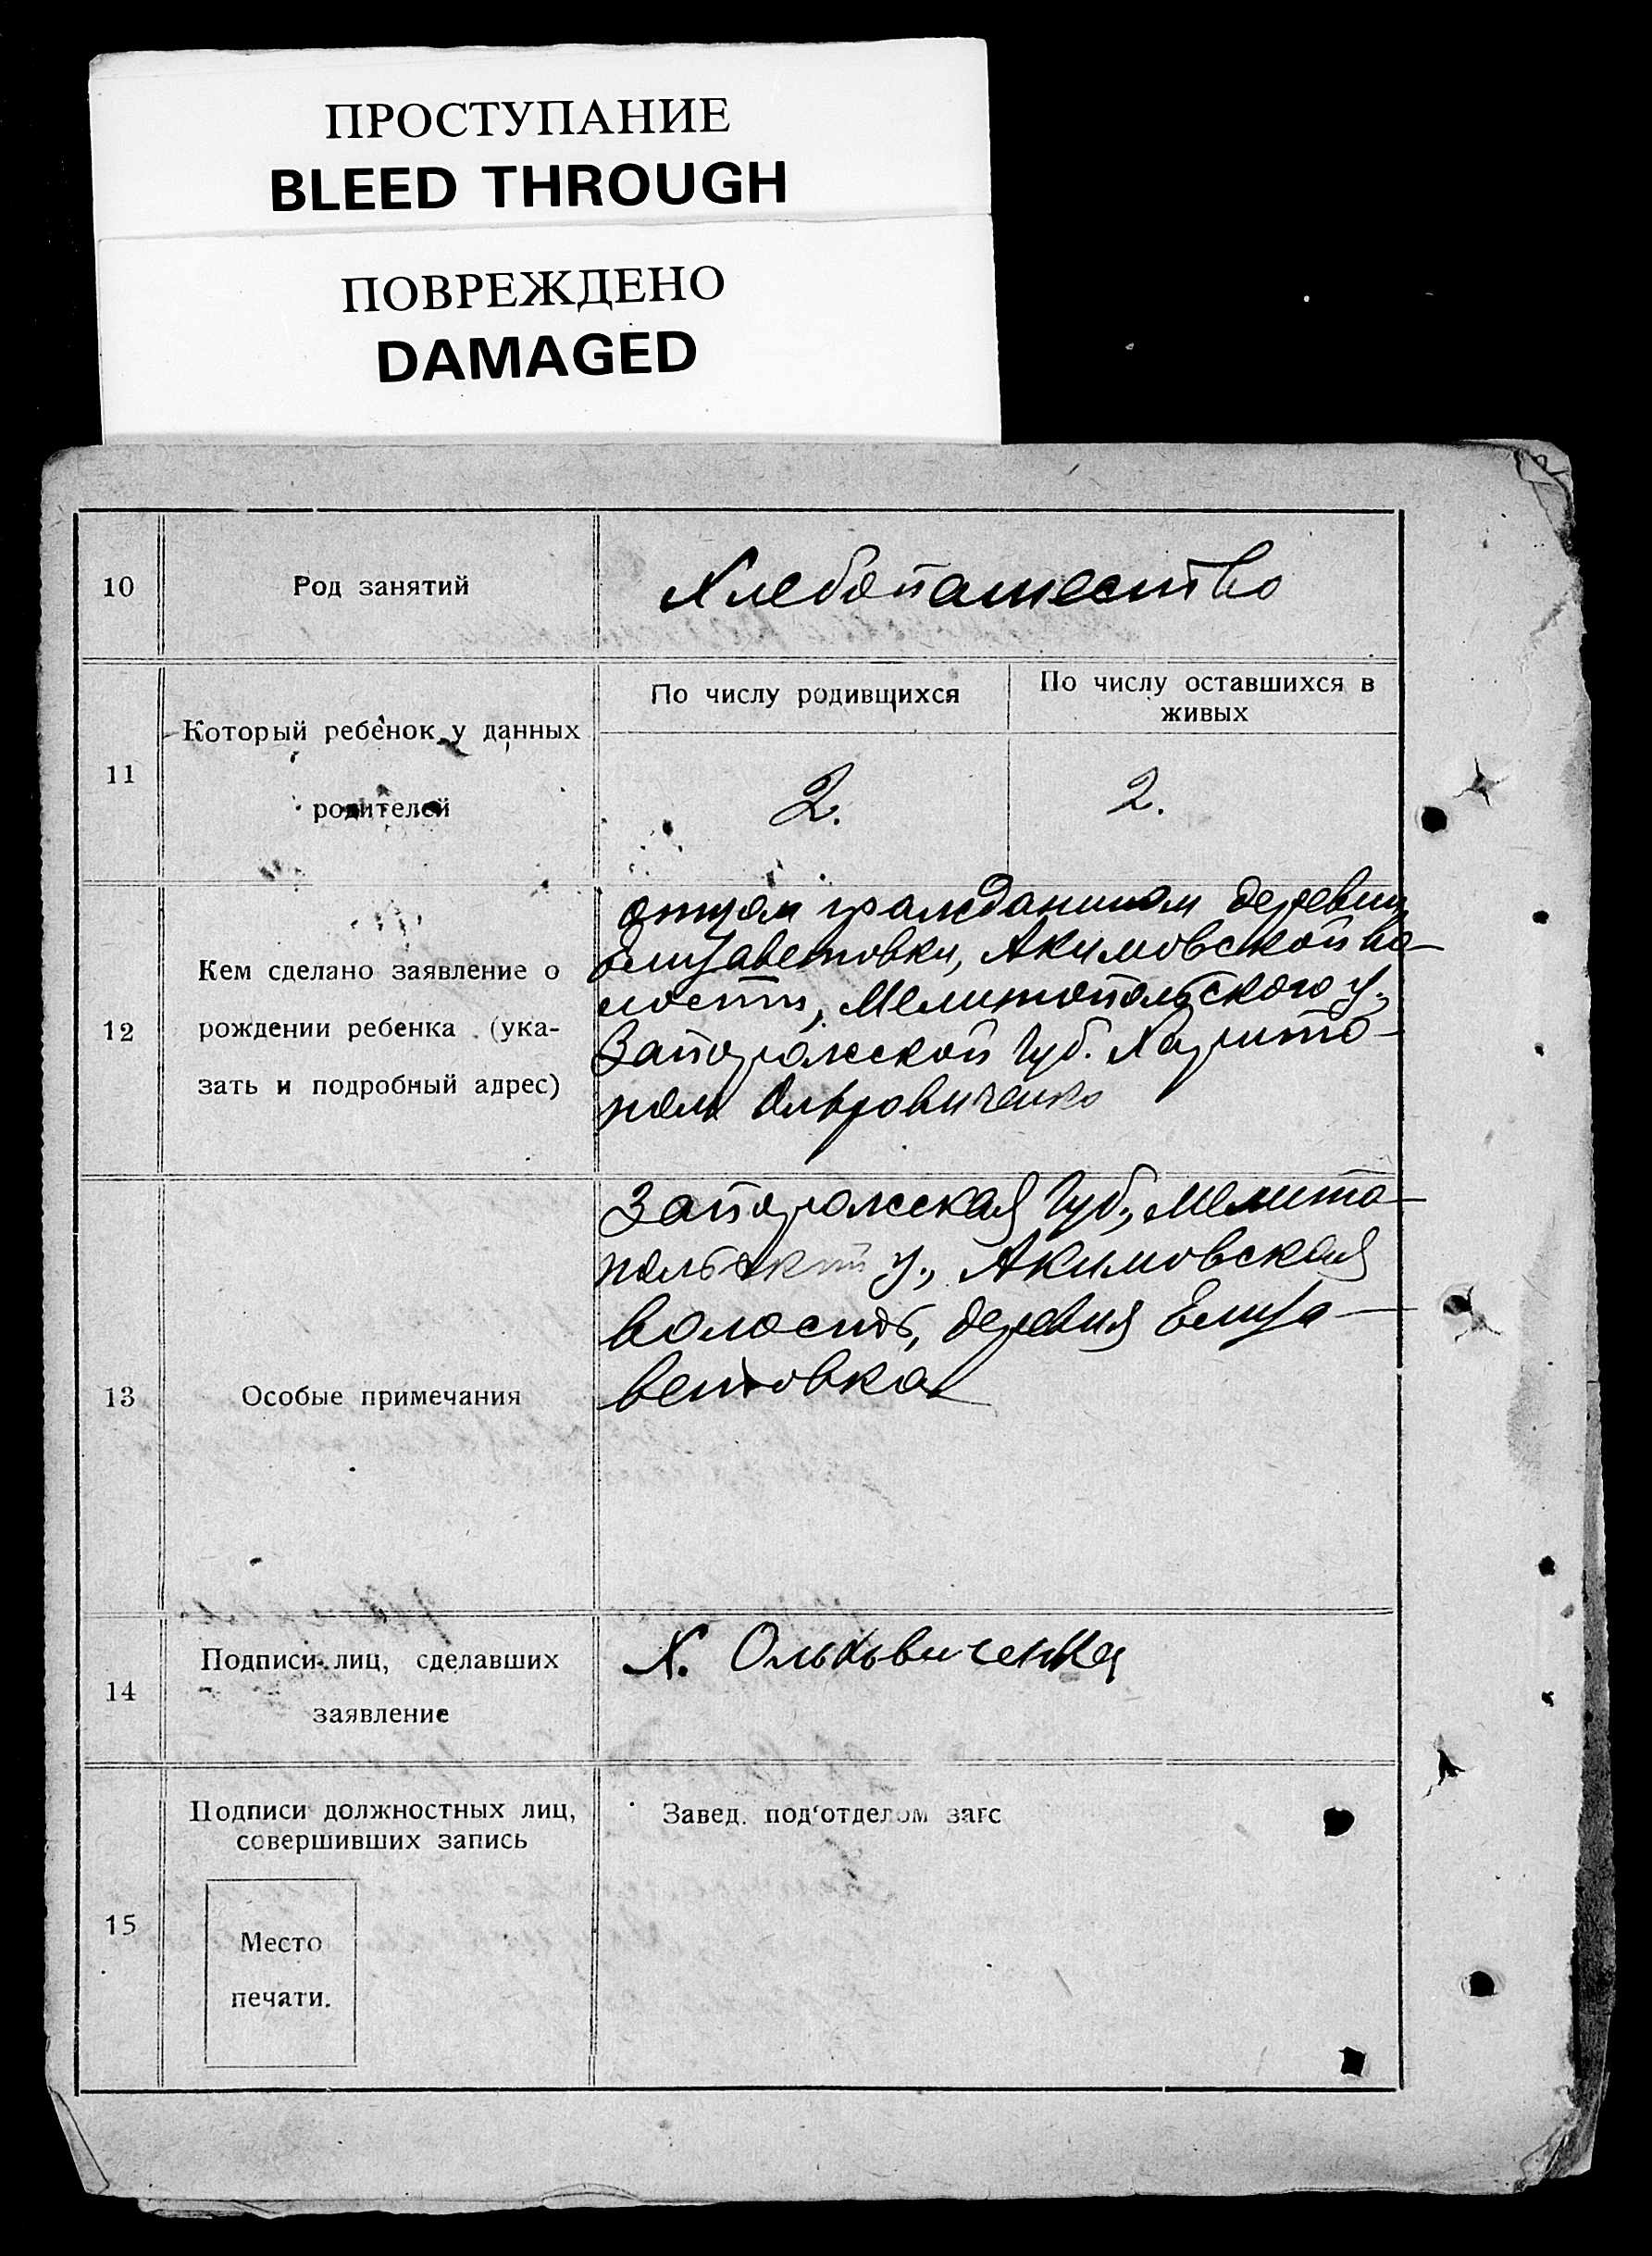 ПРОСТУПАНИЕ
BLEED THROUGH
ПОВРЕЖДЕНО
DAMAGED
10 Род занятий Хлебопашество
11 Который ребенок у данных родителей
По числу родивщихся
По числу оставшихся в живых
2. 2.
12 Кем сделано заявление о
рождении ребенка (ука-
зать и подробный адрес)
отцом гражданином деревни
Елизаветовки, Акимовской во-
лости, Мелитопольского у.,
Запорожской Губ. Харито-
ном
13 Особые примечания
Запорожская Губ., Мелито-
польский у., Акимовская
волость, деревня Елиза-
ветовка
14 Подписи лиц, сделавших
заявление
Х.
15 Подписи должностных лиц,
совершивших запись
Завед. под'отделом загс
Место
печати.